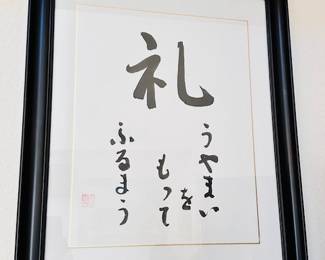 礼
うやまい
を
もって
ふるまう